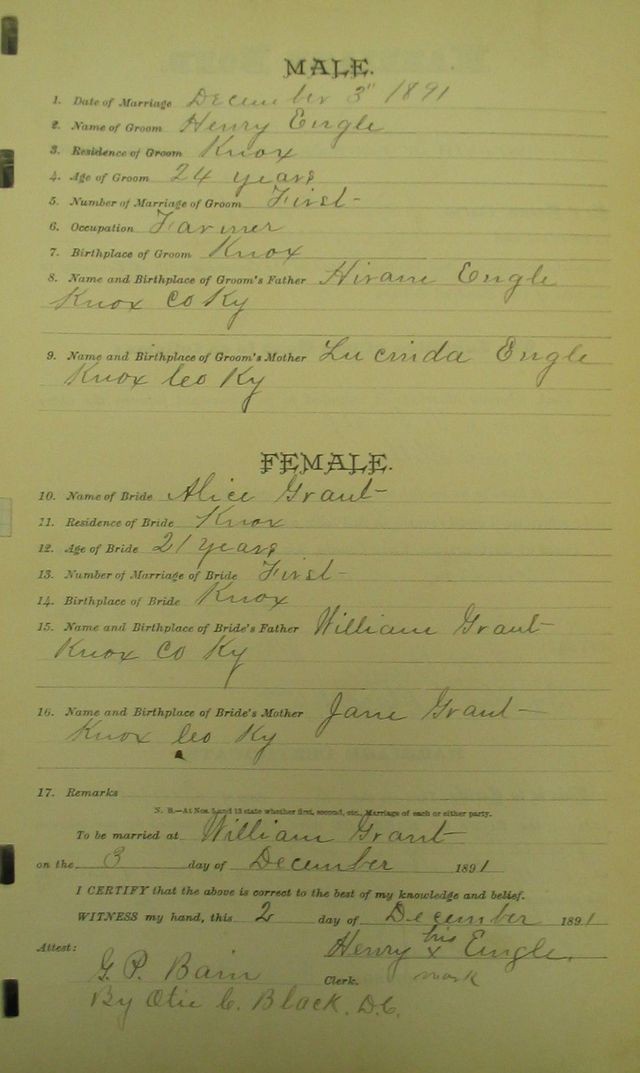 MALE.
1. Date of Marriage December 3" 1891
2. Name of Groom Henry Engle
3. Residence of Groom Knox
4. Age of Groom 24 years
5. Number of Marriage of Groom First
6. Occupation Farmer
7. Birthplace of Groom Knox
8. Name and Birthplace of Groom's Father Hiram Engle
Knox Co Ky
9. Name and Birthplace of Groom's Mother Lucinda Engle
Knox Co Ky
FEMALE.
10. Name of Bride Alice Grant
11. Residence of Bride Knox
12. Age of Bride 21 years
13. Number of Marriage of Bride First
14. Birthplace of Bride Knox
15. Name and Birthplace of Bride's Father William Grant
Knox Co Ky
16. Name and Birthplace of Bride's Mother Jane Grant
Knox Co Ky
17. Remarks
N. B.—At Nos. 5 and 13 state whether first, second, etc., Marriage of each or either party.
To be married at William Grant
on the 3 day of December 1891
I CERTIFY that the above is correct to the best of my knowledge and belief.
WITNESS my hand, this 2 day of December 1891
his
Attest: Henry x Engle.
G. P. Bain Clerk. mark
By Otie C. Black. D.C.